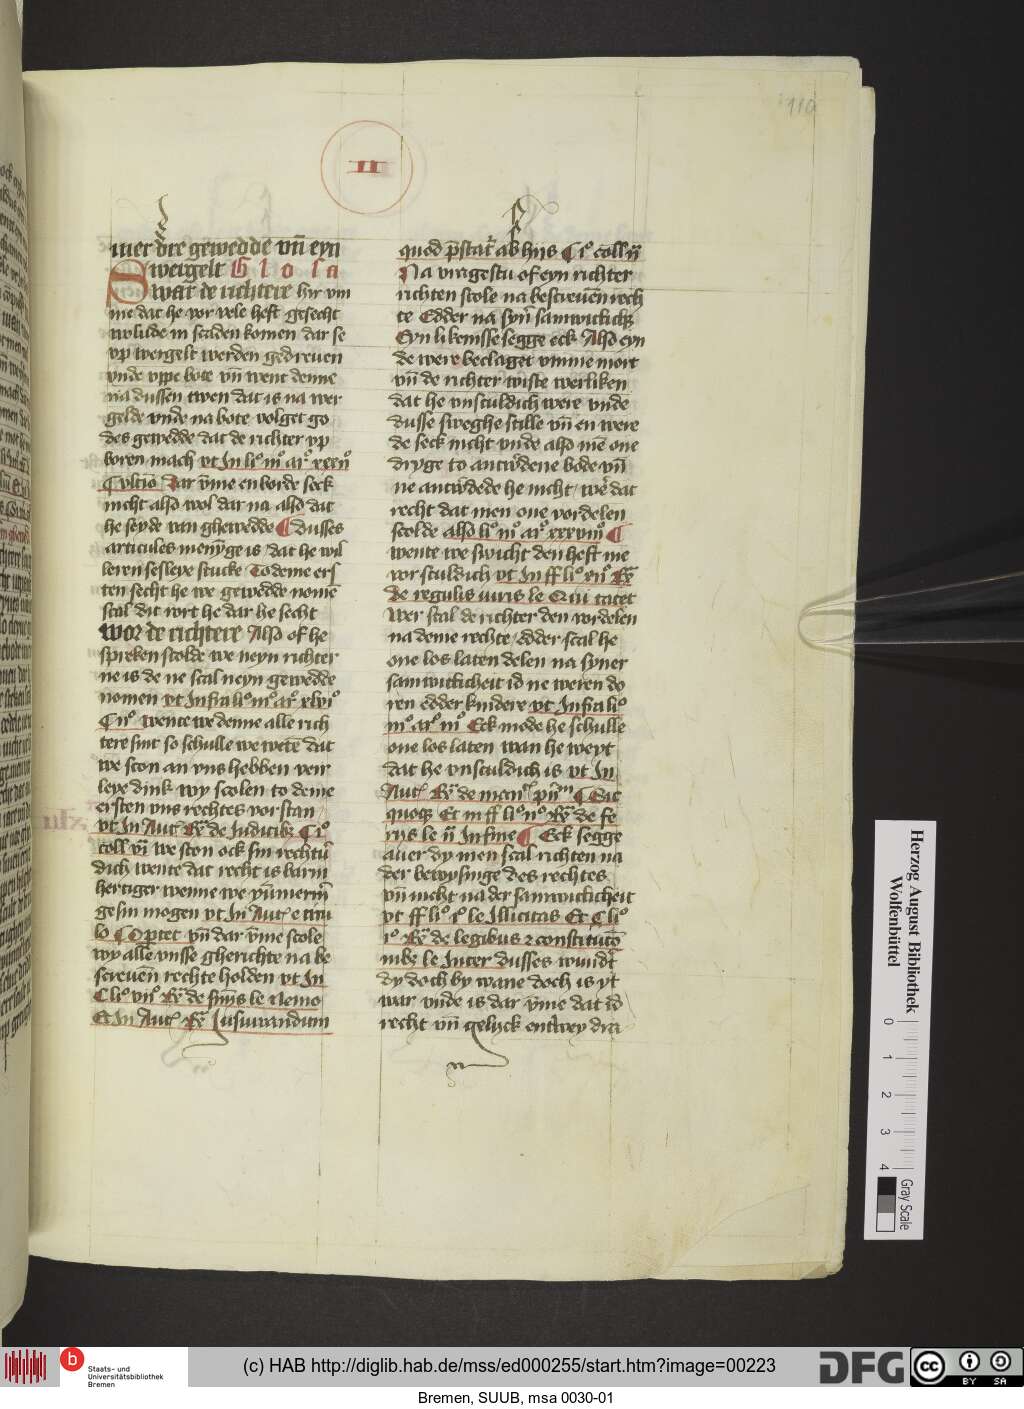 110
II
uuer dre gewedde vn̄ eyn
wergelt Glosa
Swar de richtere hir vm
me dat he vor vele heft gesecht
wo lude in scaden komen dar se
vp wergelt werden gedreuen
vnde vppe bote vn̄ went denne
na dussen twen dat is na wer
gelde vnde na bote volget go
des gewedde dat de richter vp
boren mach vt In li° m° ar°
dar v̄me en borde seck
nicht also wol dar na also dat
he seyde van ghewedde ¶ dusses
articules menyge is dat he wil
leren sesleye stucke To deme ers
ten secht he we gewedde nomē
scal dit wort he dar he secht
Wor de richtere Also of he
spreken scolde we neyn richter
ne is de ne scal neyn gewedde
nomen vt Infra li° m° ar° xlvi°
wente we denne alle rich
tere sint so schulle we wetē dat
we scon an vns hebben veir
leye dink wy scolen to deme
ersten vns rechtes vor stan
vt In Aut
we scon ock sin
dich wente dat recht is barm
hertiger wenne we
gesin mogen vt In Aut e titu
lo Oportet vn̄ dar v̄me scole
wy alle vnsse gherichte na be
screuen rechte holden vt In
C li° vii° le Nemo
Et In Aut Iusiurandum
quod ab hijs
Na vragestu of eyn richter
richten scole na bescreuen rech
te Edder na syn̄
Eyn likenisse segge eck Also eyn
de were beclaget vmme mort
vn̄ de richter wiste werliken
dat he vnsculdich were vnde
dusse sweghe stille vn̄ en were
de seck nicht vnde also mē one
dryge to antw̄dene bode vn̄
ne antw̄dede he nicht we dat
recht dat men one vordelen
scolde also li° m° ar° xxxviii° ¶
wente we swicht den heft me
vor sculdich vt In ff li°
De regulis iuris le Qui tacet
Wer scal de richter den vordelen
na deme rechte edder scal he
one los laten delen na syner
samwitticheit id ne weren do
ren edder kindere vt Infra li°
m° ar° m° Eck mode he schulle
one los laten wan he weyt
dat he vnsculdich is vt In
Aut
quoque Et in ff li° de fe
rijs le In fine ¶ Eck segge
auer dy men scal richten na
der bewysinge des rechtes
vn̄ nicht na der samwitticheit
vt ff li° i° le Illicitas Et C li°
i° de legibus
le Inter dusses
dy doch by wane doch is yt
war vnde is dar v̄me dat id
recht vn̄ gelyck entwey dra
Herzog August Bibliothek
Wolfenbüttel
0 1 2 3 4
Gray Scale
b Staats- und
Universitätsbibliothek
Bremen
(c) HAB http://diglib.hab.de/mss/ed000255/start.htm?image=00223
DFG
cc BY SA
Bremen, SUUB, msa 0030-01